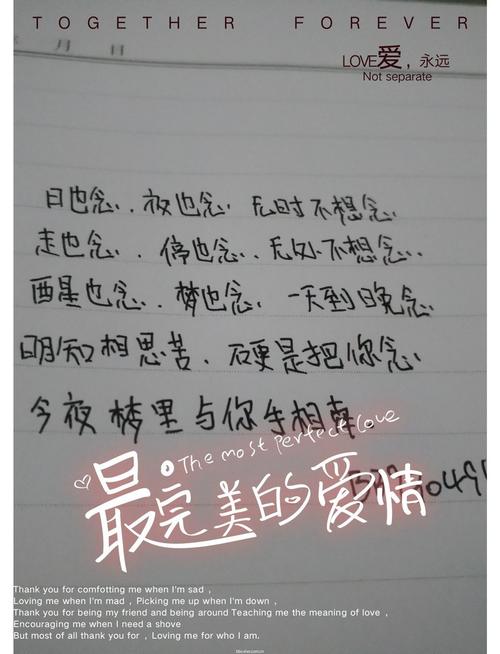 TOGETHER FOREVER
月 日
LOVE爱，永远
Not separate
日也念、夜也念、无时不想念、
走也念、停也念、无处不想念、
酉星也念、梦也念、一天到晚念、
明知相思苦、硬是把你念、
今夜梦里与你手相牵。
The most perfect Love
最完美的爱情
Thank you for comfotting me when I'm sad ,
Loving me when I'm mad , Picking me up when I'm down ,
Thank you for being my friend and being around Teaching me the meaning of love ,
Encouraging me when I need a shove
But most of all thank you for , Loving me for who I am.